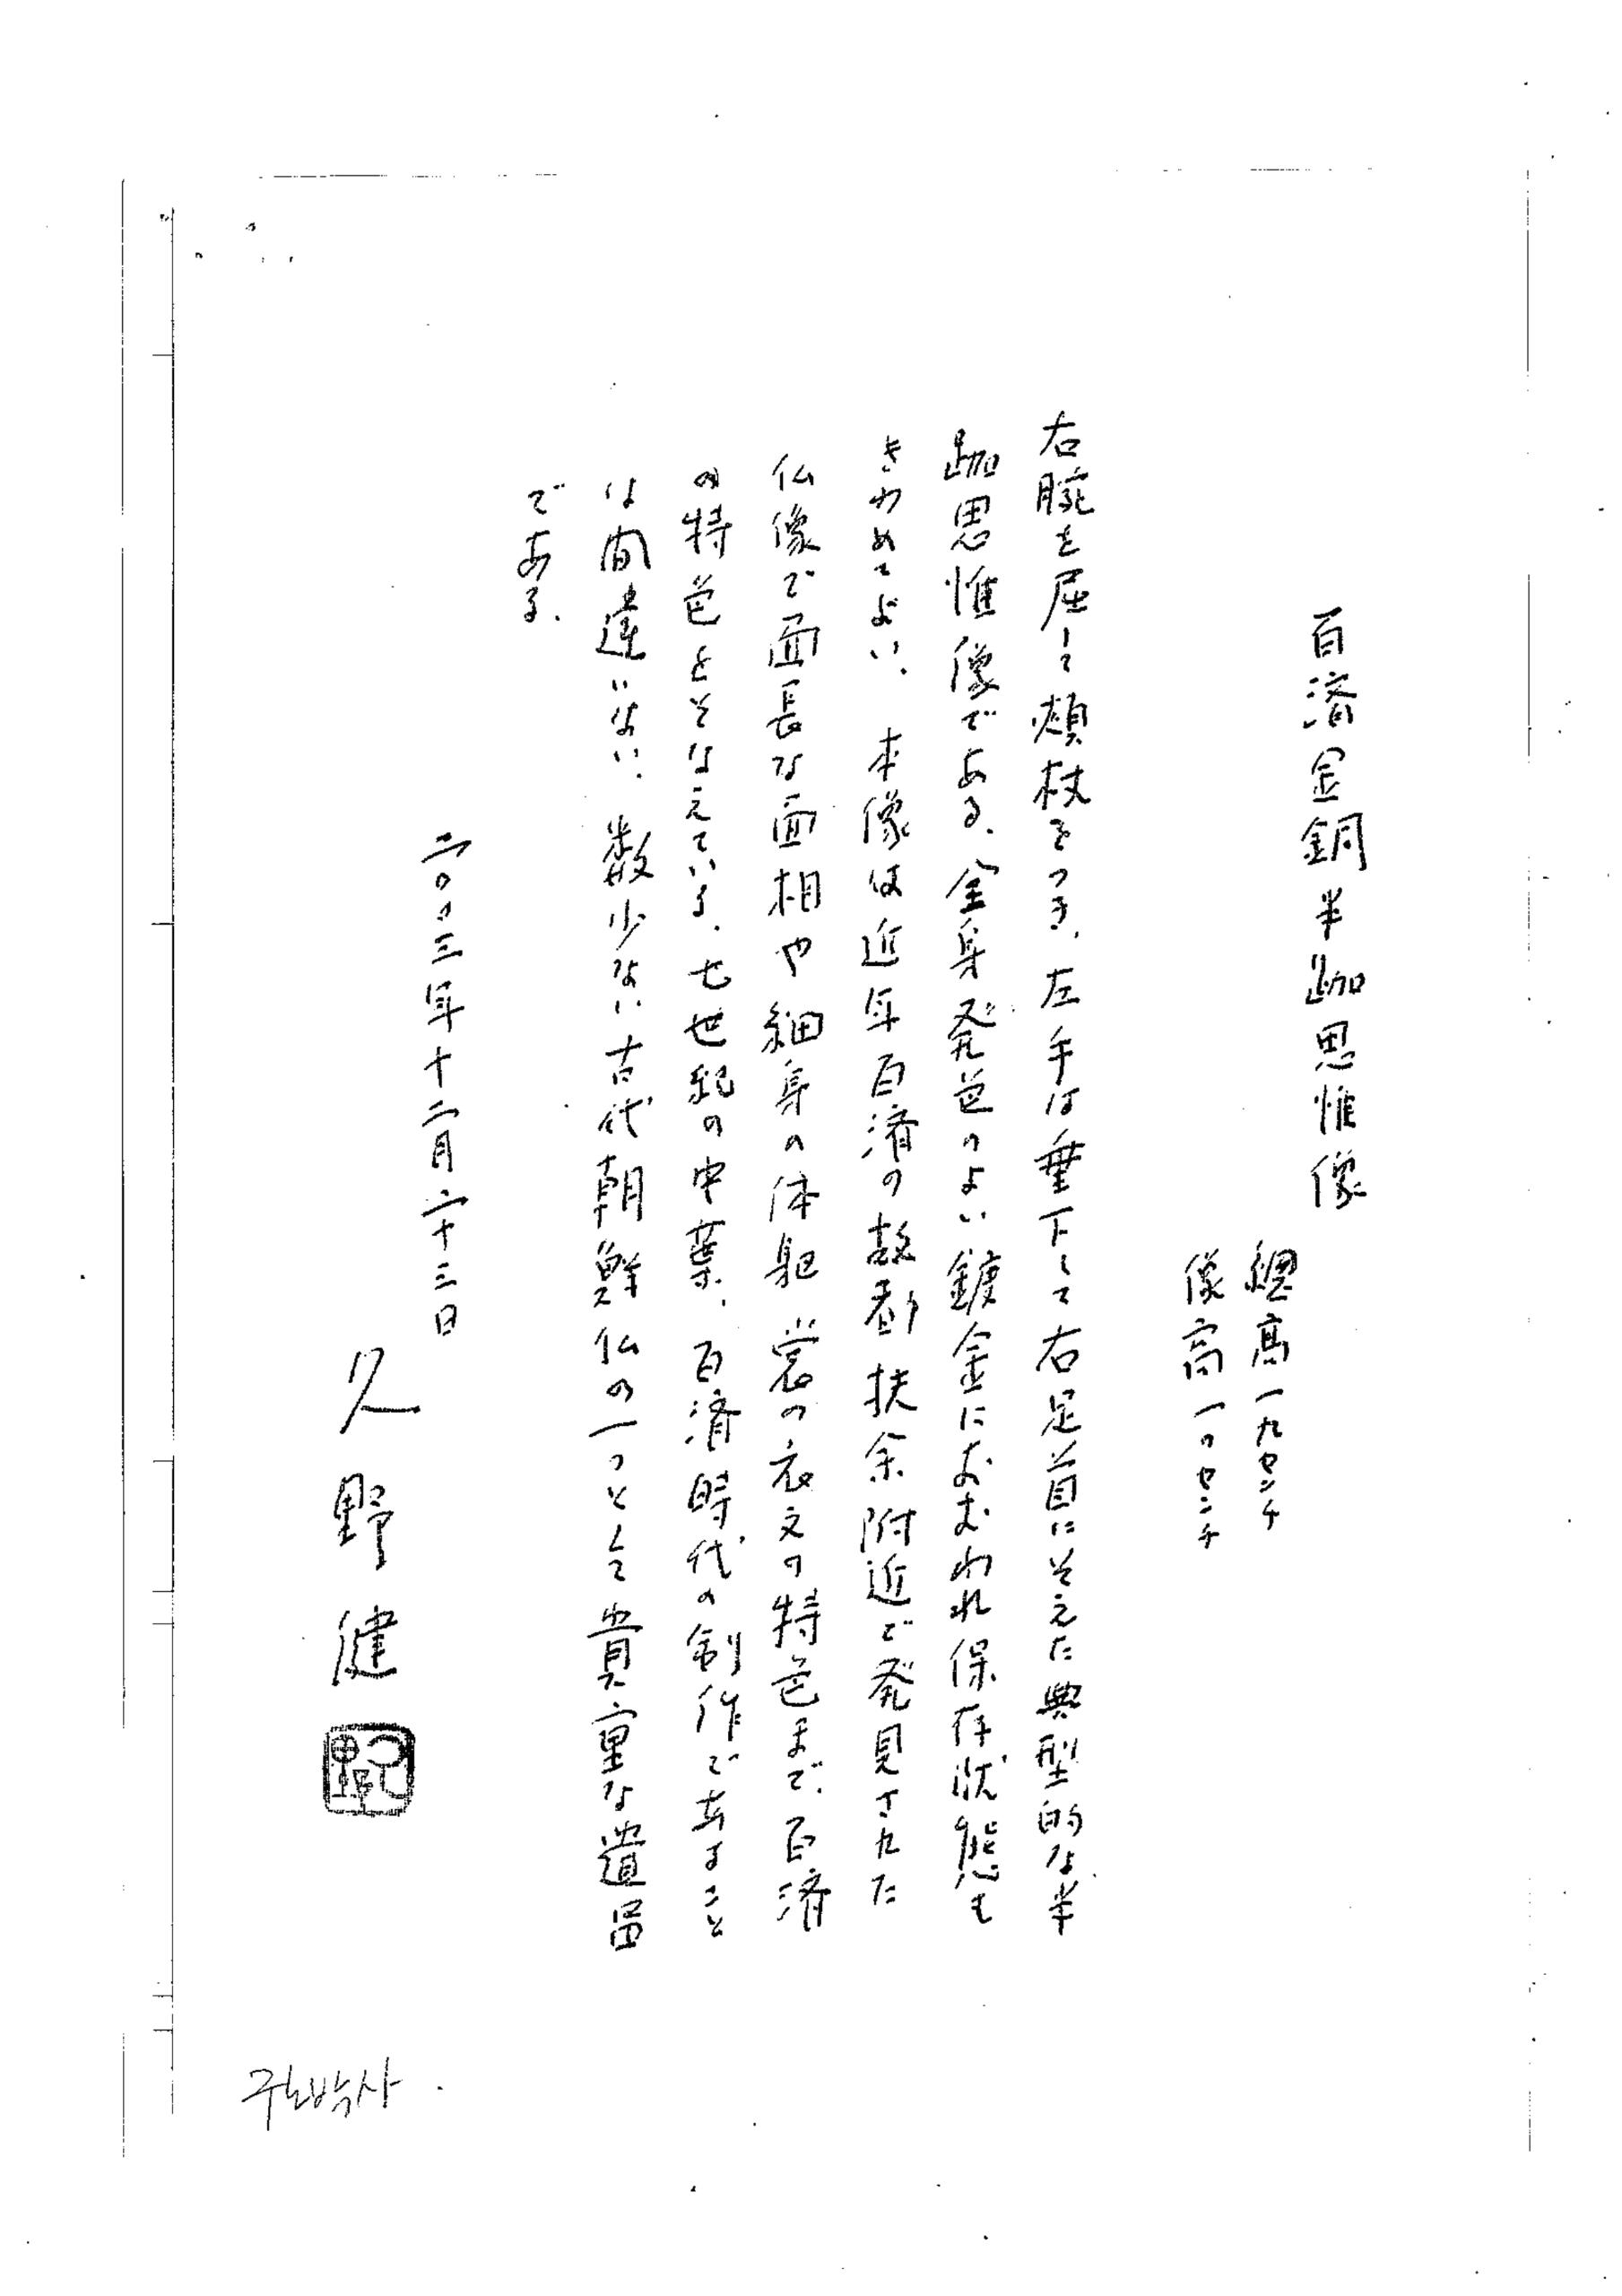 百済金銅半跏思惟像
総高一九センチ
像高一〇センチ
右腕を屈して頬杖をつき、左手は垂下して右足首にそえた典型的な半
跏思惟像である、全身発色のよい鍍金におおわれ保存状態も
きわめてよい、本像は近年百済の故都扶余附近で発見された
仏像で面長な面相や細身の体躯 裳の衣文の特色まで、百済
の特色をそなえている、七世紀の中葉、百済時代の制作であること
は間違いない、数少ない古代朝鮮仏の一つとして貴重な遺品
である、
二〇〇三年十二月二十三日
久野健
구노박사